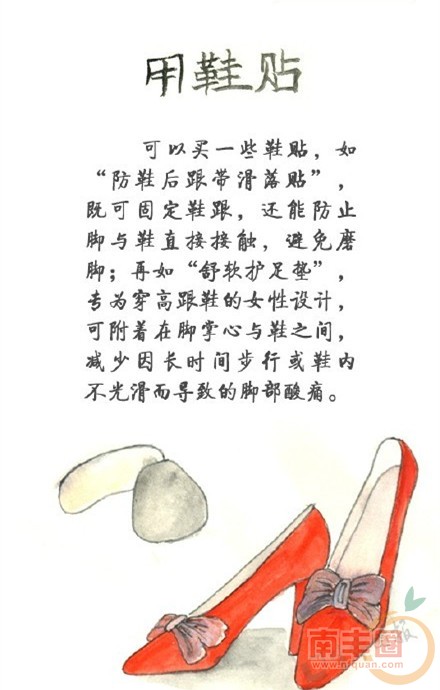 用鞋贴
可以买一些鞋贴，如
“防鞋后跟带滑落贴”，
既可固定鞋跟，还能防止
脚与鞋直接接触，避免磨
脚；再如“舒软护足垫”，
专为穿高跟鞋的女性设计，
可附着在脚掌心与鞋之间，
减少因长时间步行或鞋内
不光滑而导致的脚部酸痛。
报
南丰圈
www.nfquan.com